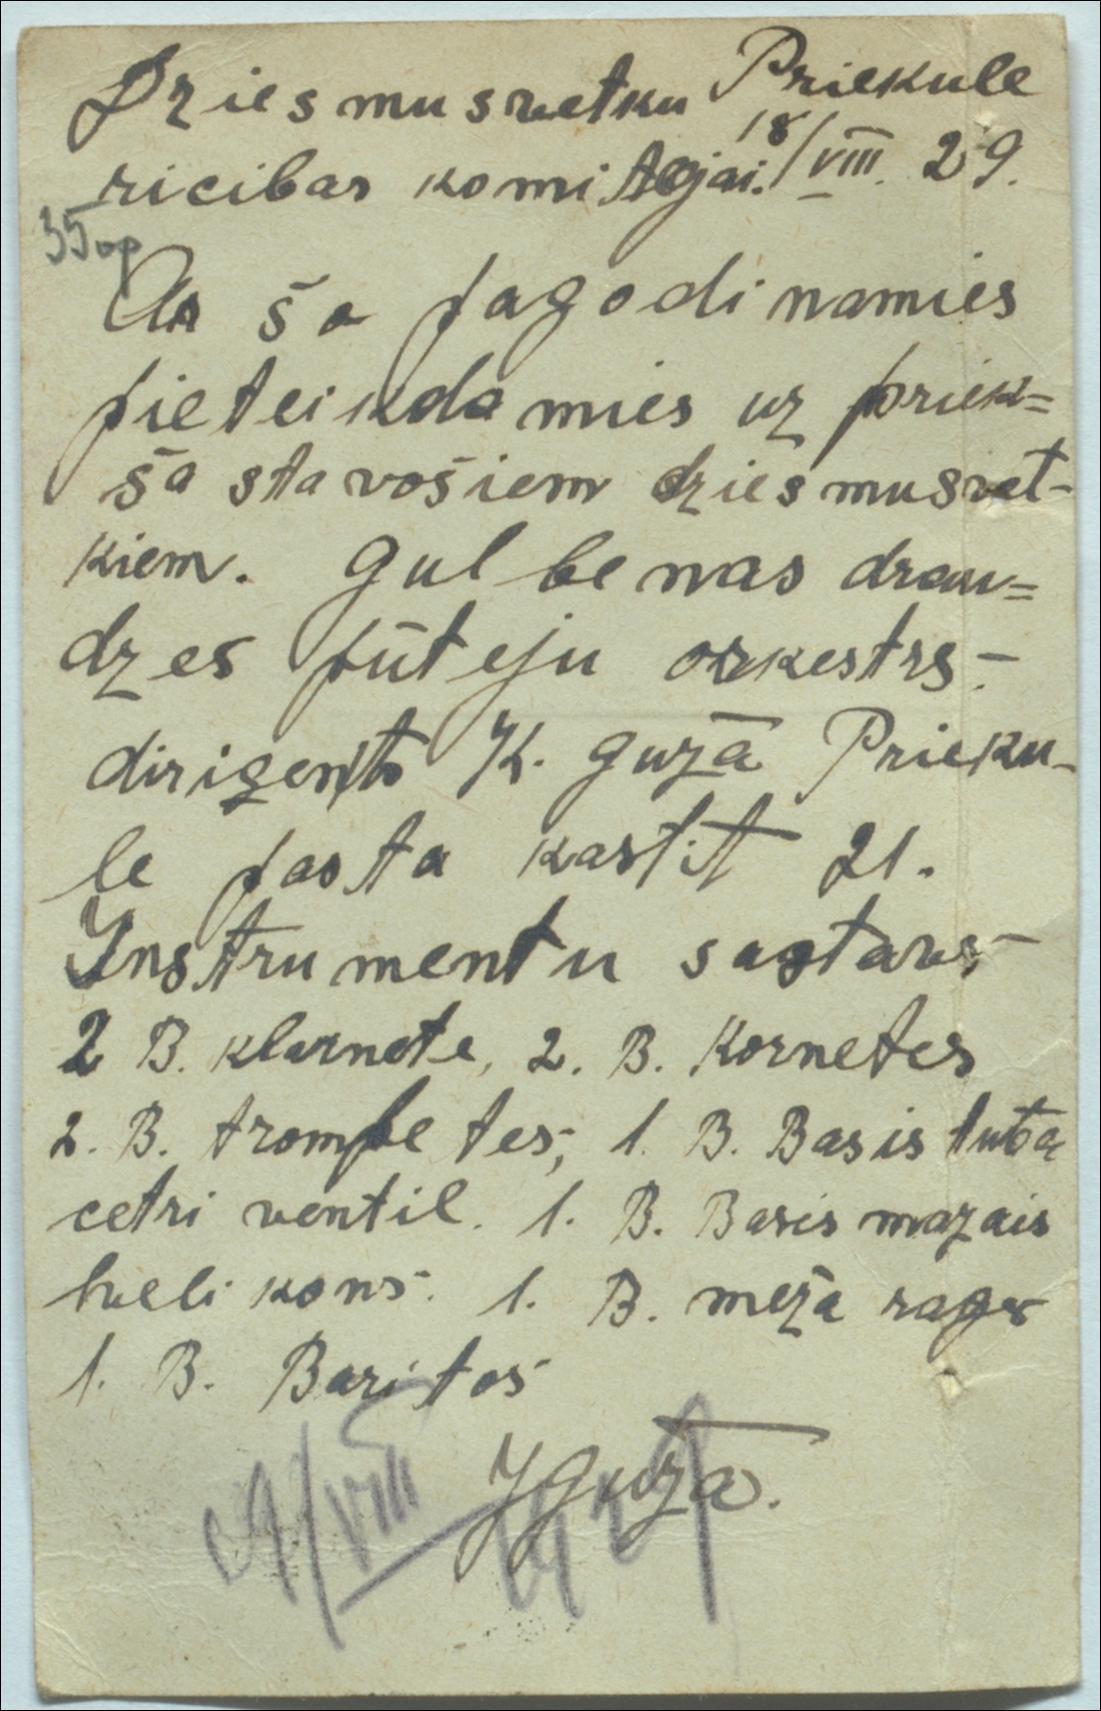 Dziesmusvetku Priekule
ricibas komitejai. 18/VIII. 29.
35
Ar šo pagodinamies
pieteikdamies uz priek=
ša stavošiem dziesmusvet-
kiem. Gulbenas drau=
dzes pūteju orkestrs-
dirigents K. Guza Prieku-
le pasta kastīt 21.
Instrumentu sastavs-
2 B. klarnete, 2. B. Kornetes
2. B. trompetes, 1. B. Basis tuba
cetri ventil. 1. B. Basis mazais
helikons. 1. B. meža rags
1. B. Baritos
Guza.
VIII